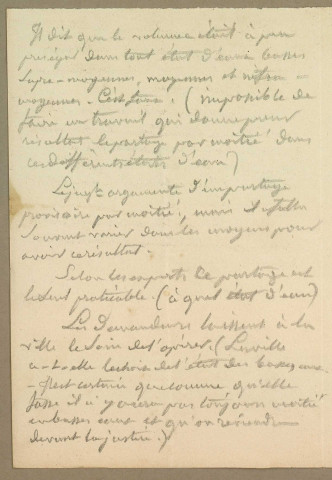 Il dit que le volume était à peu
près égal dans tout état d'eau basses
supra-moyennes, moyennes et infra-
moyennes. C'est faux. (impossible de
faire un travail qui donne pour
résultat le partage par moitié dans
ces différents états d'eau)
Le jugt argumente d'un partage
provisoire par moitié, mais il
souvent varier dans les moyens pour
avoir ce résultat.
Selon les experts ce partage est
le seul praticable. (à quel état d'eau)
Les Demandeurs laissent à la
ville le soin de l'opérer. (La ville
a-t-elle le choix de l'état des basses eaux
- Il est certain que comme qu'elle
fasse il n'y aura pas toujours moitié
en basses eaux et qu'on reviendra
devant la justice.)